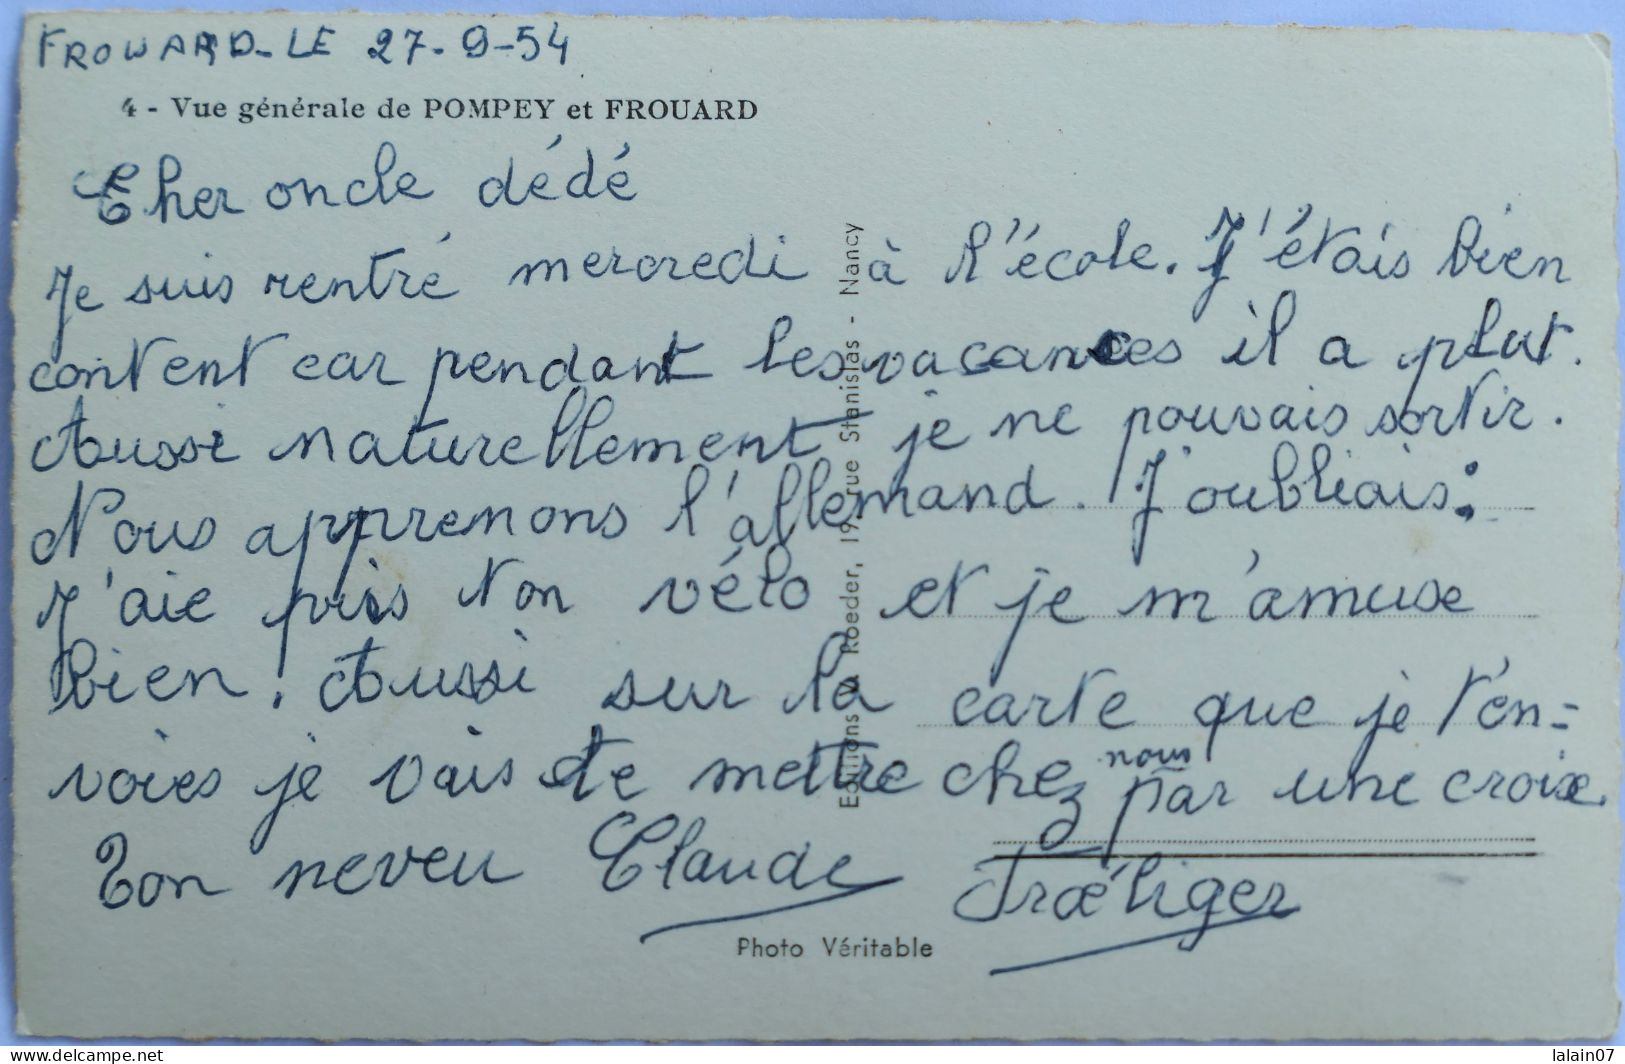 FROUARD-LE 27-9-54
4 - Vue générale de POMPEY et FROUARD
Cher oncle dédé
Je suis rentré mercredi à l'école. J'étais bien
content car pendant les vacances il a plut.
Aussi naturellement je ne pouvais sortir.
Nous apprenons l'allemand. J'oubliais:
J'aie pris ton vélo et je m'amuse
bien. Aussi sur la carte que je t'en=
voies je vais te mettre chez nous par une croix.
Ton neveu Claude Frœliger
Editions Roeder, 19, rue Stanislas - Nancy
Photo Véritable
lalain07